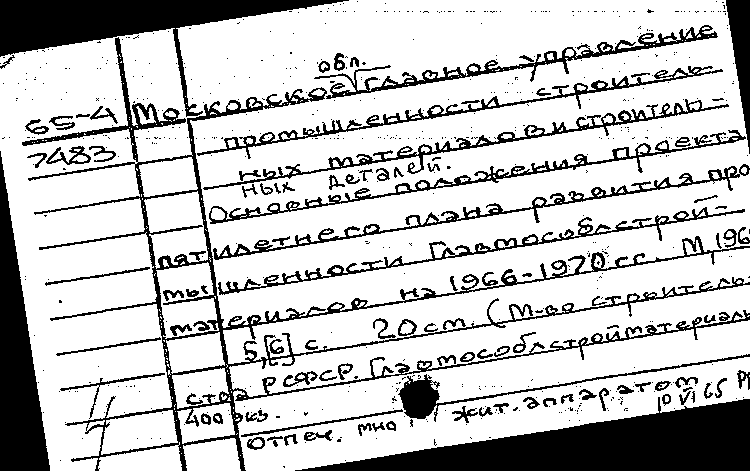 обл.
65-4 Московское √ главное управление
7483 промышленности строитель-
ных материалов и строитель-
ных деталей.
Основные положения проекта
пятилетнего плана развития про
мышленности Главмособлстрой-
материалов на 1966-1970 гг. М, 196
5, [6] с. 20 см. (М-во строитель
ства РСФСР. Главмособлстройматериаль
400 экз.
Отпеч. множит. аппаратом
10 VI 65